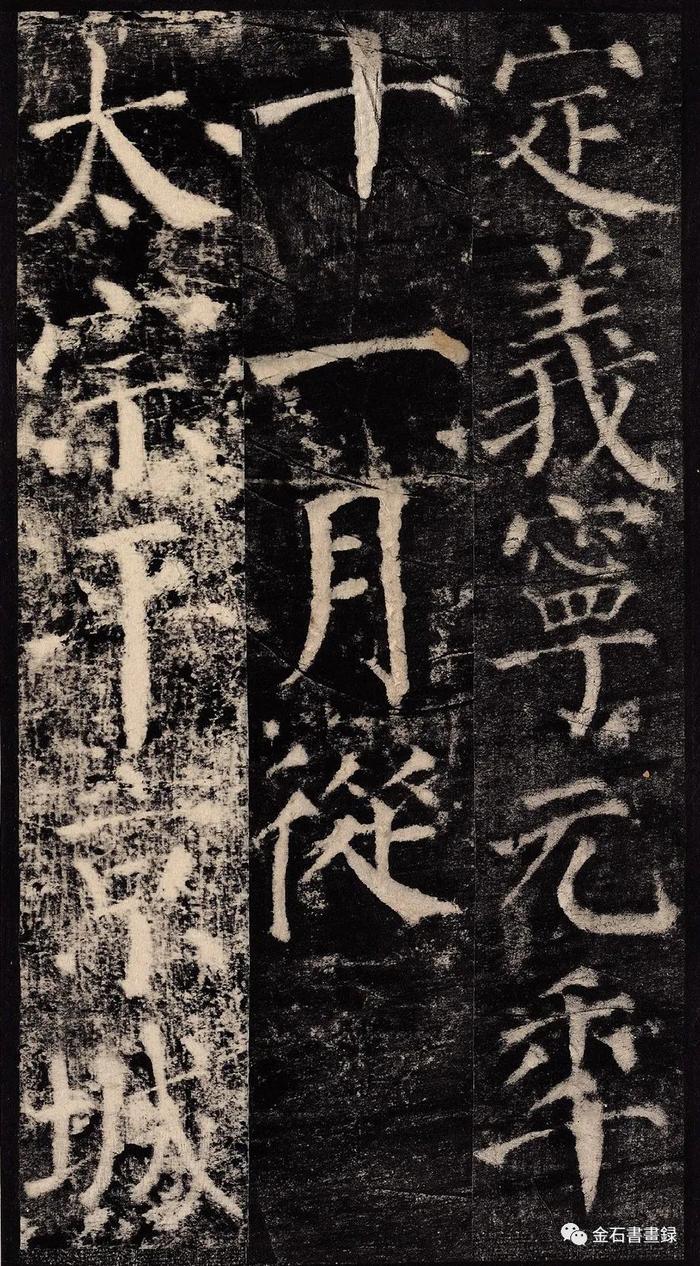 定義寧元年
十一月從
太宗平京城
金石書畫録